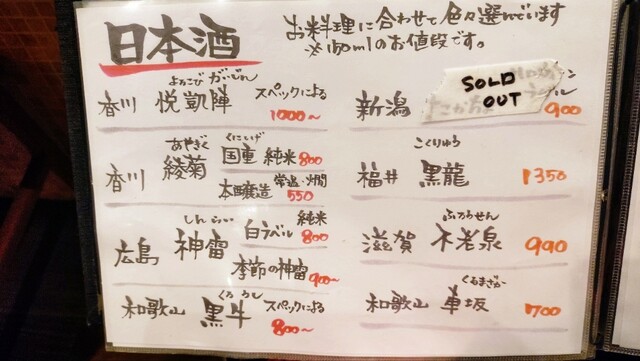 日本酒
お料理に合わせて色々選んでいます
※180mlのお値段です。
よろこび がいじん
香川 悦凱陣 スペックによる
1000〜
あやぎく
香川 綾菊
くにしげ
国重 純米 800
本醸造 常温・燗 550
しんらい
広島 神雷 白ラベル 純米 800
季節の神雷
900〜
くろうし
和歌山 黒牛 スペックによる
800〜
新潟
SOLD
OUT
900
こくりゅう
福井 黒龍 1350
ふろうせん
滋賀 不老泉 990
くるまざか
和歌山 車坂 1700